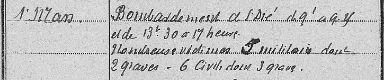 1er Mars Bombardement de St Dié de 9h à
et de 13h30 à 17 heures
Nombreuses victimes 5 militaires dont
2 graves - 6 Civils dont 3 grav.